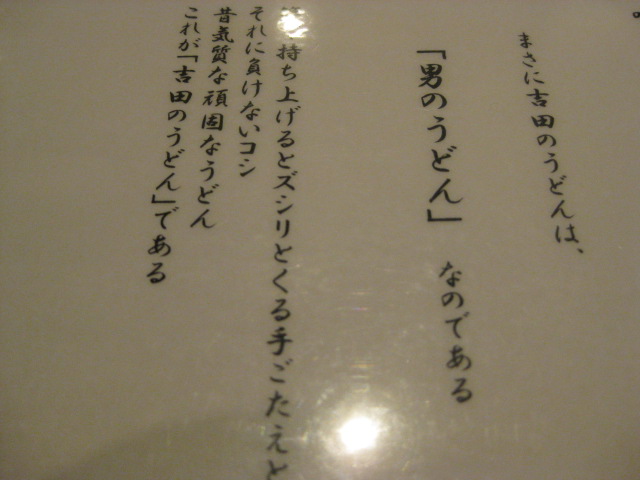 まさに吉田のうどんは、
「男のうどん」 なのである
持ち上げるとズシリとくる手ごたえと
それに負けないコシ
昔気質な頑固なうどん
これが「吉田のうどん」である